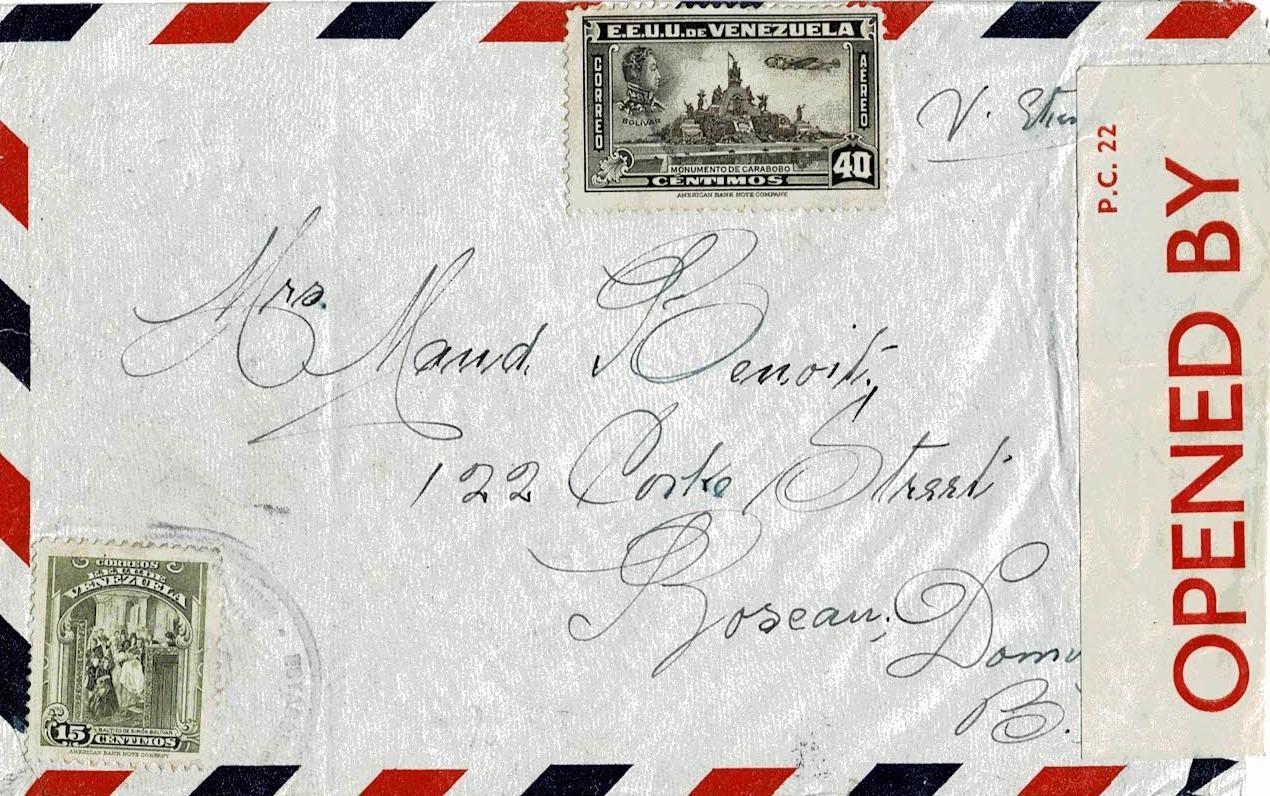 E.E.U.U. DE VENEZUELA
CORREO
AEREO
BOLIVAR
MONUMENTO DE CARABOBO
CENTIMOS
40
AMERICAN BANK NOTE COMPANY
V.
P.C. 22
OPENED BY
Mrs. Maud Benoit,
122 Corke Street
Roseau, Domi
B.
CORREOS
E.E.U.U. DE
VENEZUELA
BAUTIZO DE SIMÓN BOLIVAR
15 CENTIMOS
AMERICAN BANK NOTE COMPANY